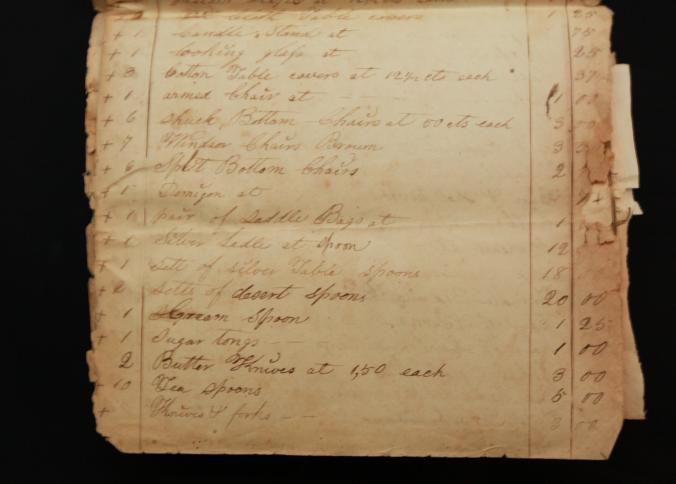 Table covers 1 25
+ 1 Candle Stand at 75
+ 1 Looking glass at 25
+ 3 Cotton Table covers at 12½ cts each 37
+ 1 armed Chair at 1 00
+ 6 Shuck Bottom Chairs at 50 cts each 3 00
+ 7 Windsor Chairs Brown 3
+ 6 Split Bottom Chairs 2
+ 1 Demijon at
+ 1 pair of Saddle Bags at 1
+ 1 Silver Ladle at Spoon 12
+ 1 sett of silver Table spoons 18 00
+ 2 setts of desert spoons 20 00
+ 1 Cream Spoon 1 25
+ 1 Sugar tongs 1 00
2 Butter Knives at 1,50 each 3 00
+ 10 Tea spoons 5 00
+ Knives & forks 3 00